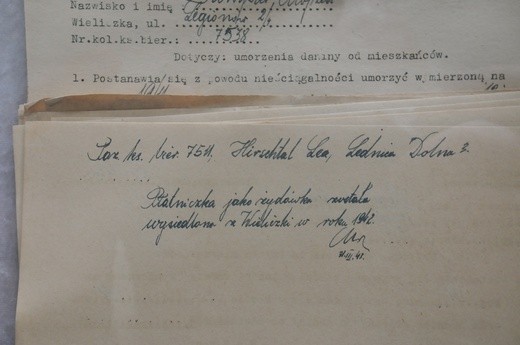 Nazwisko i imię
Wieliczka, ul. Legionów 2
Nr.kol.ks.bier.: 7538
Dotyczy: umorzenia daniny od mieszkańców.
1. Postanawia się z powodu nieściągalności umorzyć wymierzoną na
Poz ks. bier. 7511, Hirschtal Lea, Lednica Dolna 2.
Płatniczka jako żydówka została
wysiedlona z Wieliczki w roku 1942.